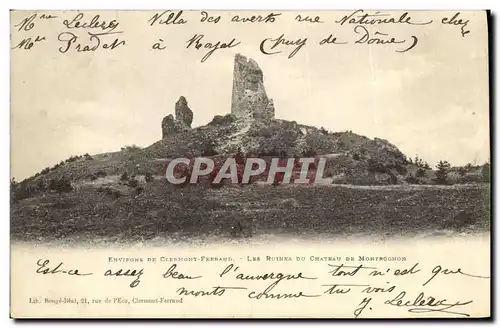 Mr Leclerc Villa des averts rue Nationale chez
Mr Pradet à Royat (Puy de Dôme)
CPARAMA.COM
Environs de Clermont-Ferrand. - Les Ruines du Chateau de Montrognon
Est-ce assez beau l'auvergne tout n'est que
monts comme tu vois
Y. Leclerc
Lib. Rougé-Béal, 21, rue de l'Eco, Clermont-Ferrand